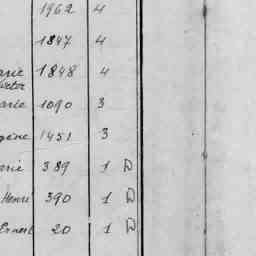 1962 4
1847 4
arie 1848 4
Victor
arie 1090 3
gène 1451 3
arie 389 1 D
Henri 390 1 D
Ernest 20 1 D